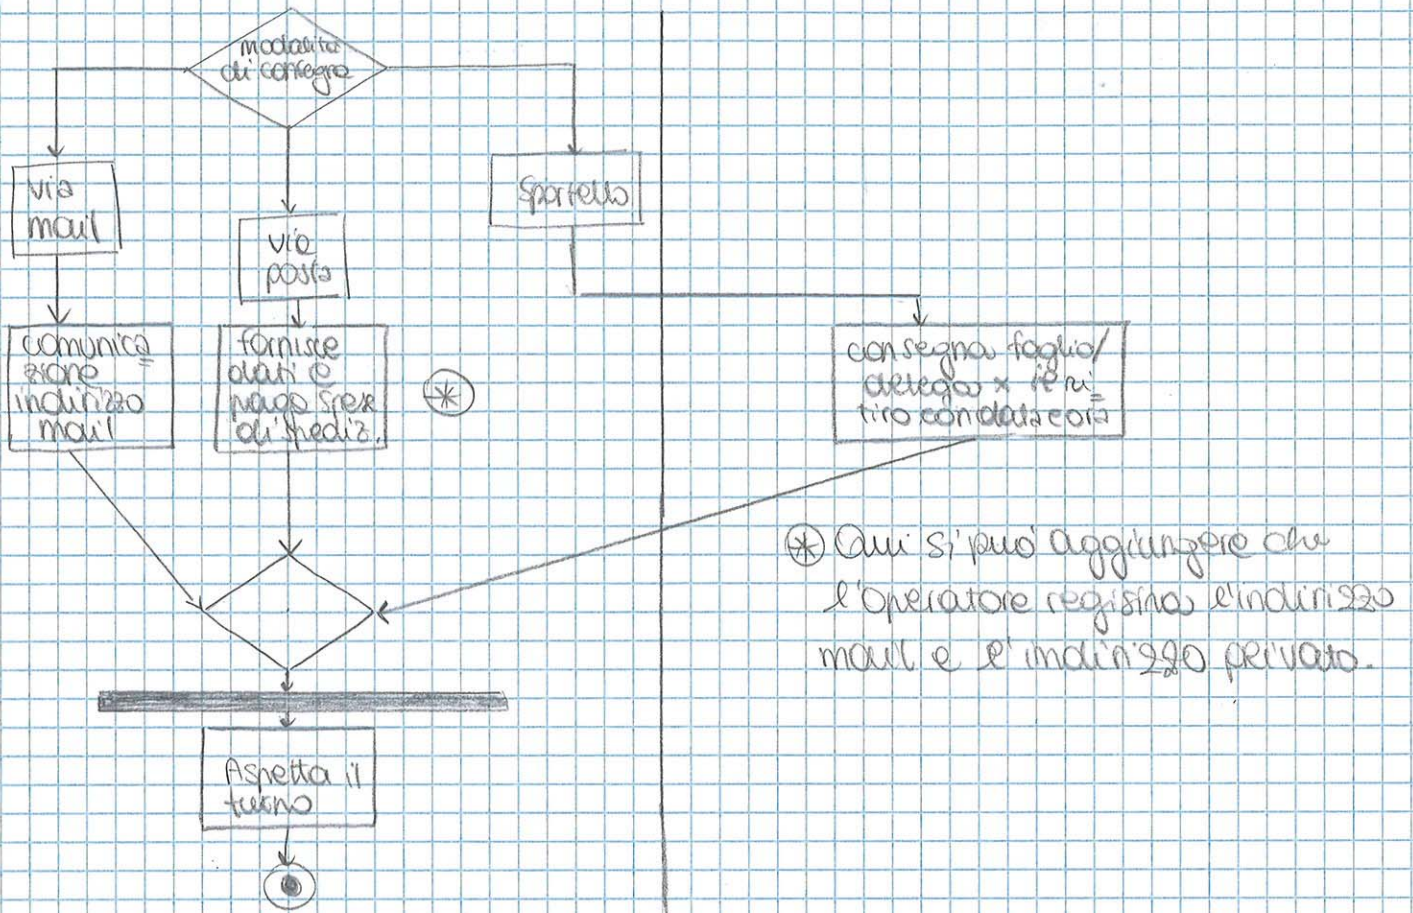 modalità
di consegna
via
mail
via
posta
Sportello
comunica=
zione
indirizzo
mail
fornisce
dati e
paga spese
di spediz.
*
consegna foglio/
delega x il ri=
tiro con data e ora
* Qui si può aggiungere che
l'operatore registra l'indirizzo
mail e l'indirizzo privato.
Aspetta il
turno